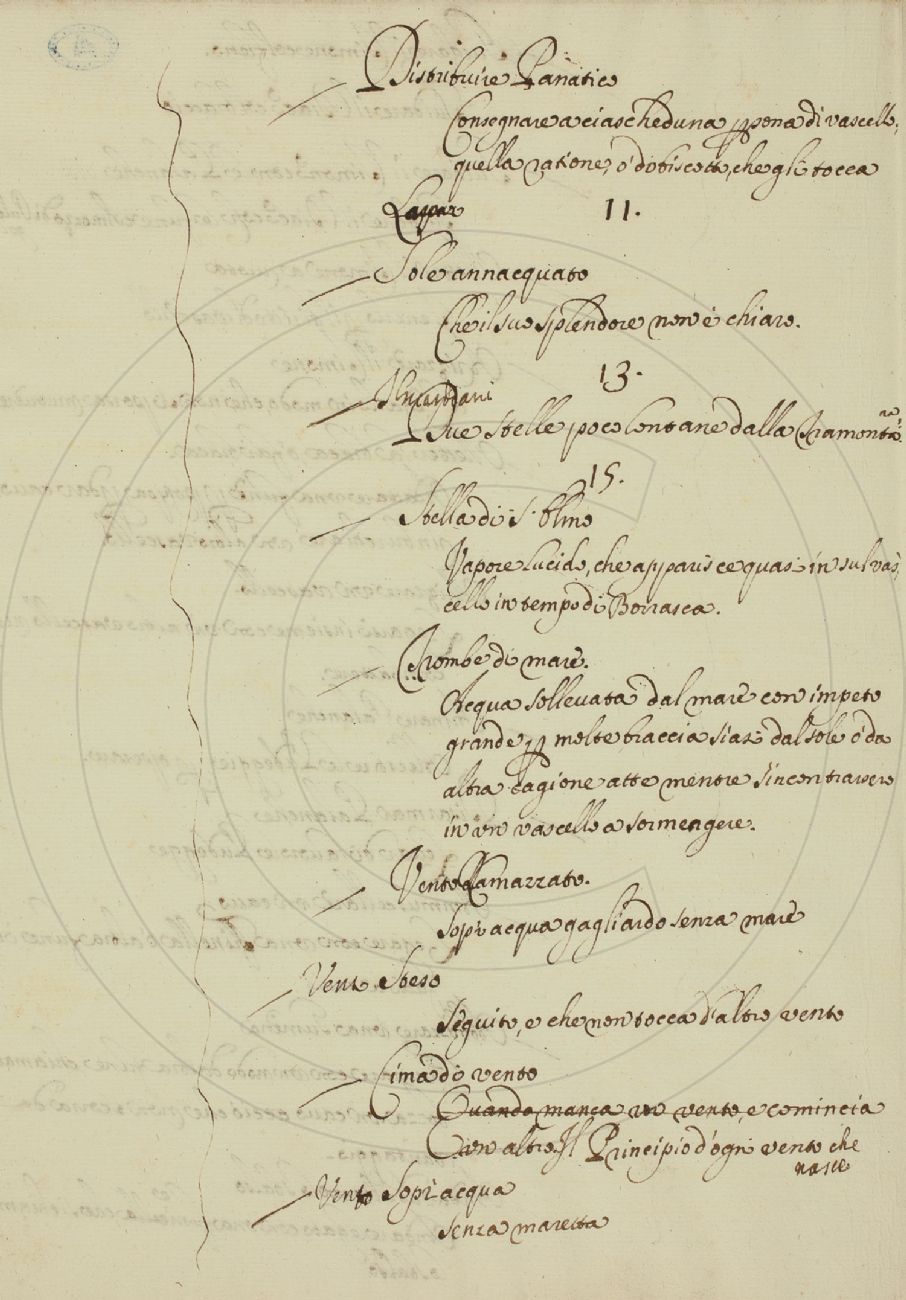 Distribuire Panatico
Consegnare a ciascheduna ꝑsona di vascello,
quella ratione, ó di biscotto, che gli tocca
11.
Sole annacquato
Che il suo splendore non è chiaro.
13.
Due stelle poco lontane dalla Tramontana.
15.
Stella di S. Elmo
Vapore lucido, che apparisce quasi in sul vas,
cello in tempo di Borrasca.
Trombe di mare.
Acqua sollevata dal mare con impeto
grande ꝑ molte braccia siasi dal sole ó da
altra cagione atte mentre s'incontrassero
in un vascello a sommergere.
Vento Camazzato.
Sopr'acqua gagliardo senza mare
Vento Steso
Seguito, e che non tocca d'altro vento
Cima di vento
Quando manca un vento, e comincia
un altro. Il Principio d'ogni vento che
nasce
Vento Sopr'acqua
senza maretta